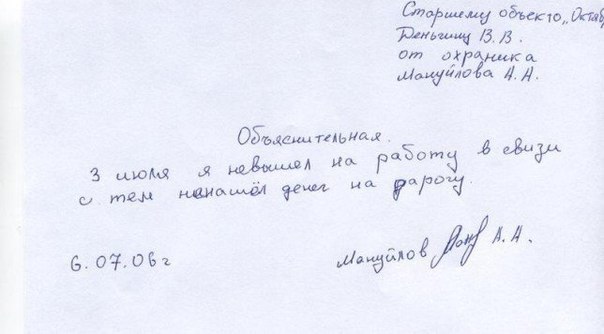 Старшему объекто „Октяб
Деньгищу В.В.
от охраника
Мануйлова А.А.
Объяснительная.
3 июля я невышел на работу в свизи
с тем ненашёл денег на дарогу.
6.07.06г
Мануйлов А.А.